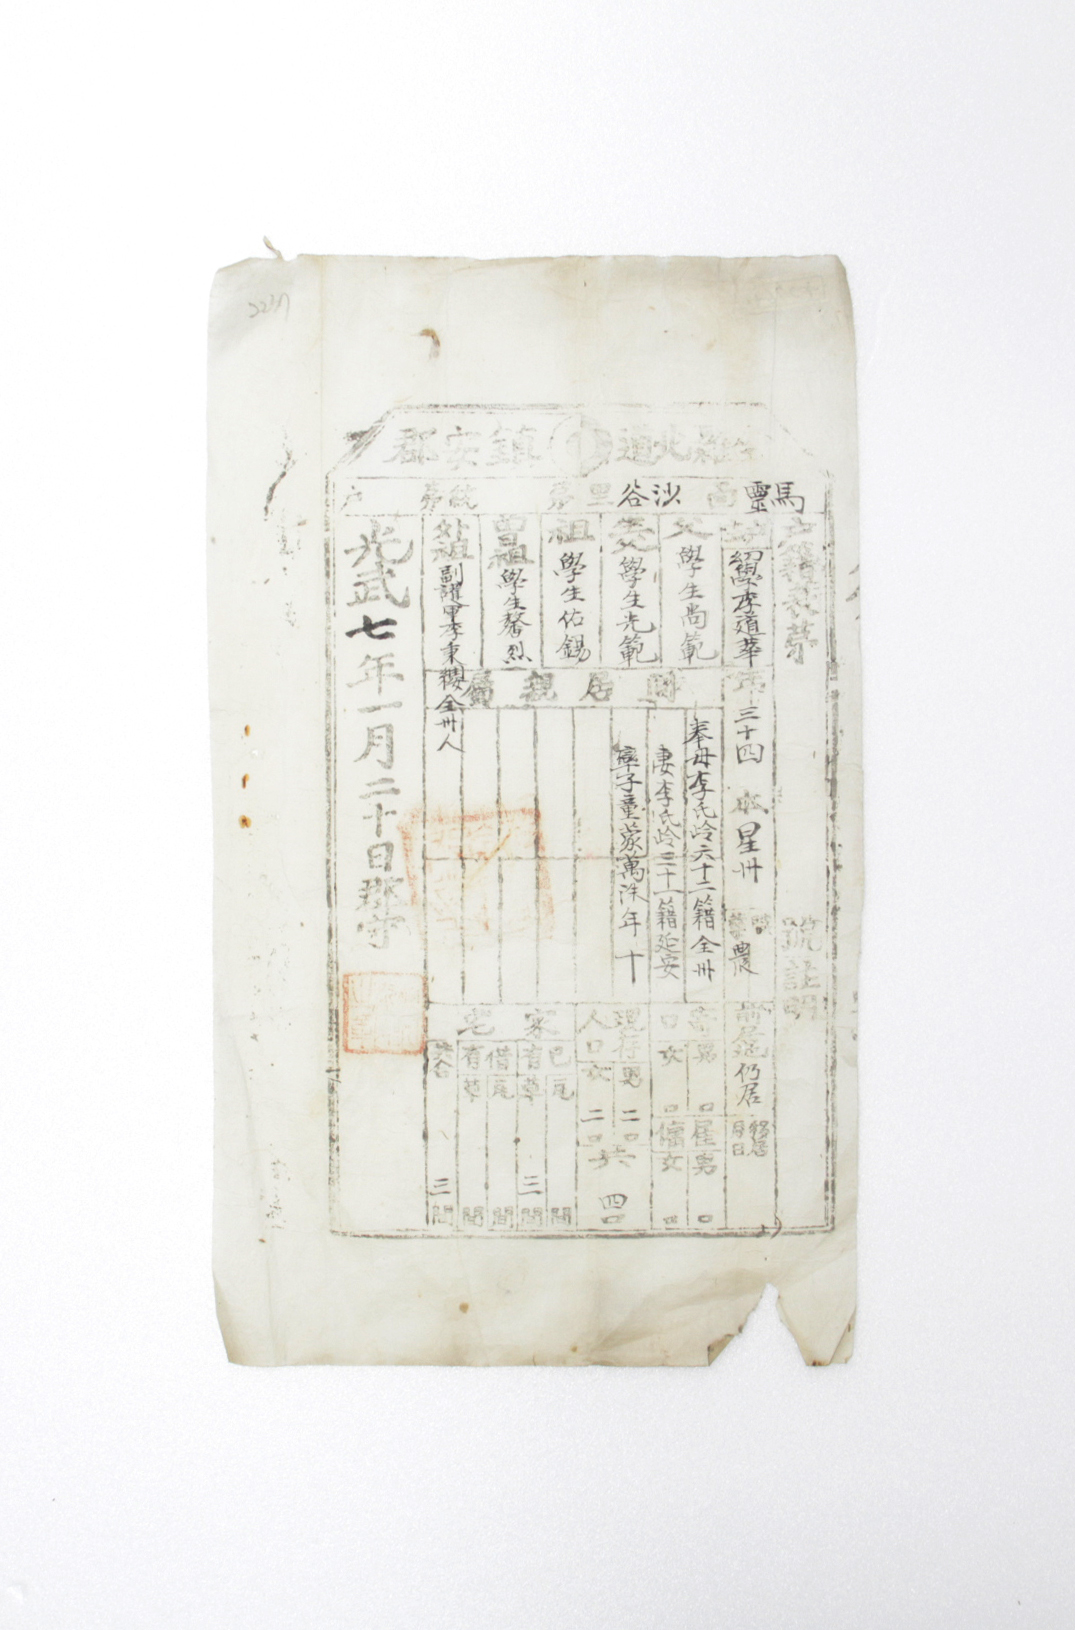 全羅北道鎭安郡
馬靈面沙谷里第統第戶
戶籍表第號証明
幼學李道華年三十四本星州職業農前居地仍居移居月日
父學生尚範
生父學生光範
祖學生佑錫
曾祖學生馨烈
外祖副護軍李秉櫻全州人
同居親屬
奉母李氏齡六十二籍全州
妻李氏齡三十一籍延安
率子童蒙萬洙年十
寄口男口女口
雇傭男口女口
現存人口男二口女二口共四口
家宅
己有瓦間草三間
借有瓦間草間
共合三間
光武七年一月二十日郡守